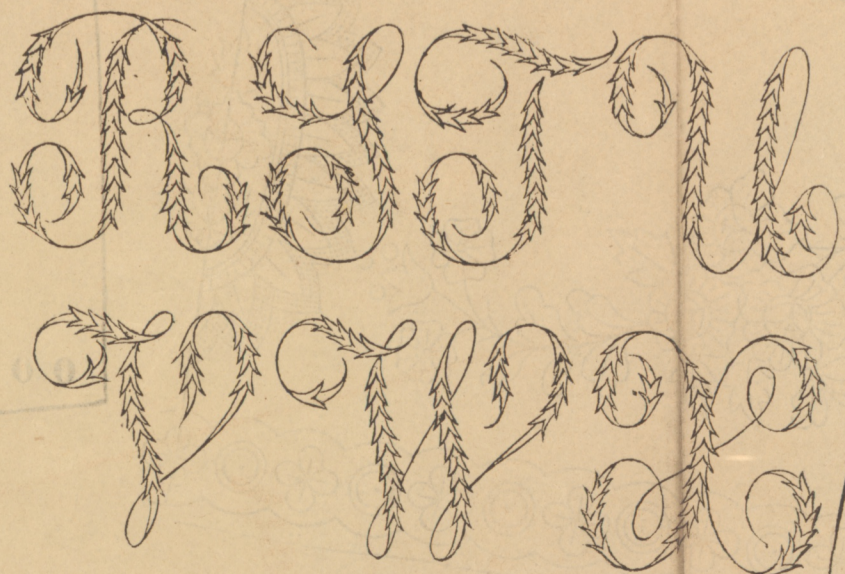 R S T U
V W X